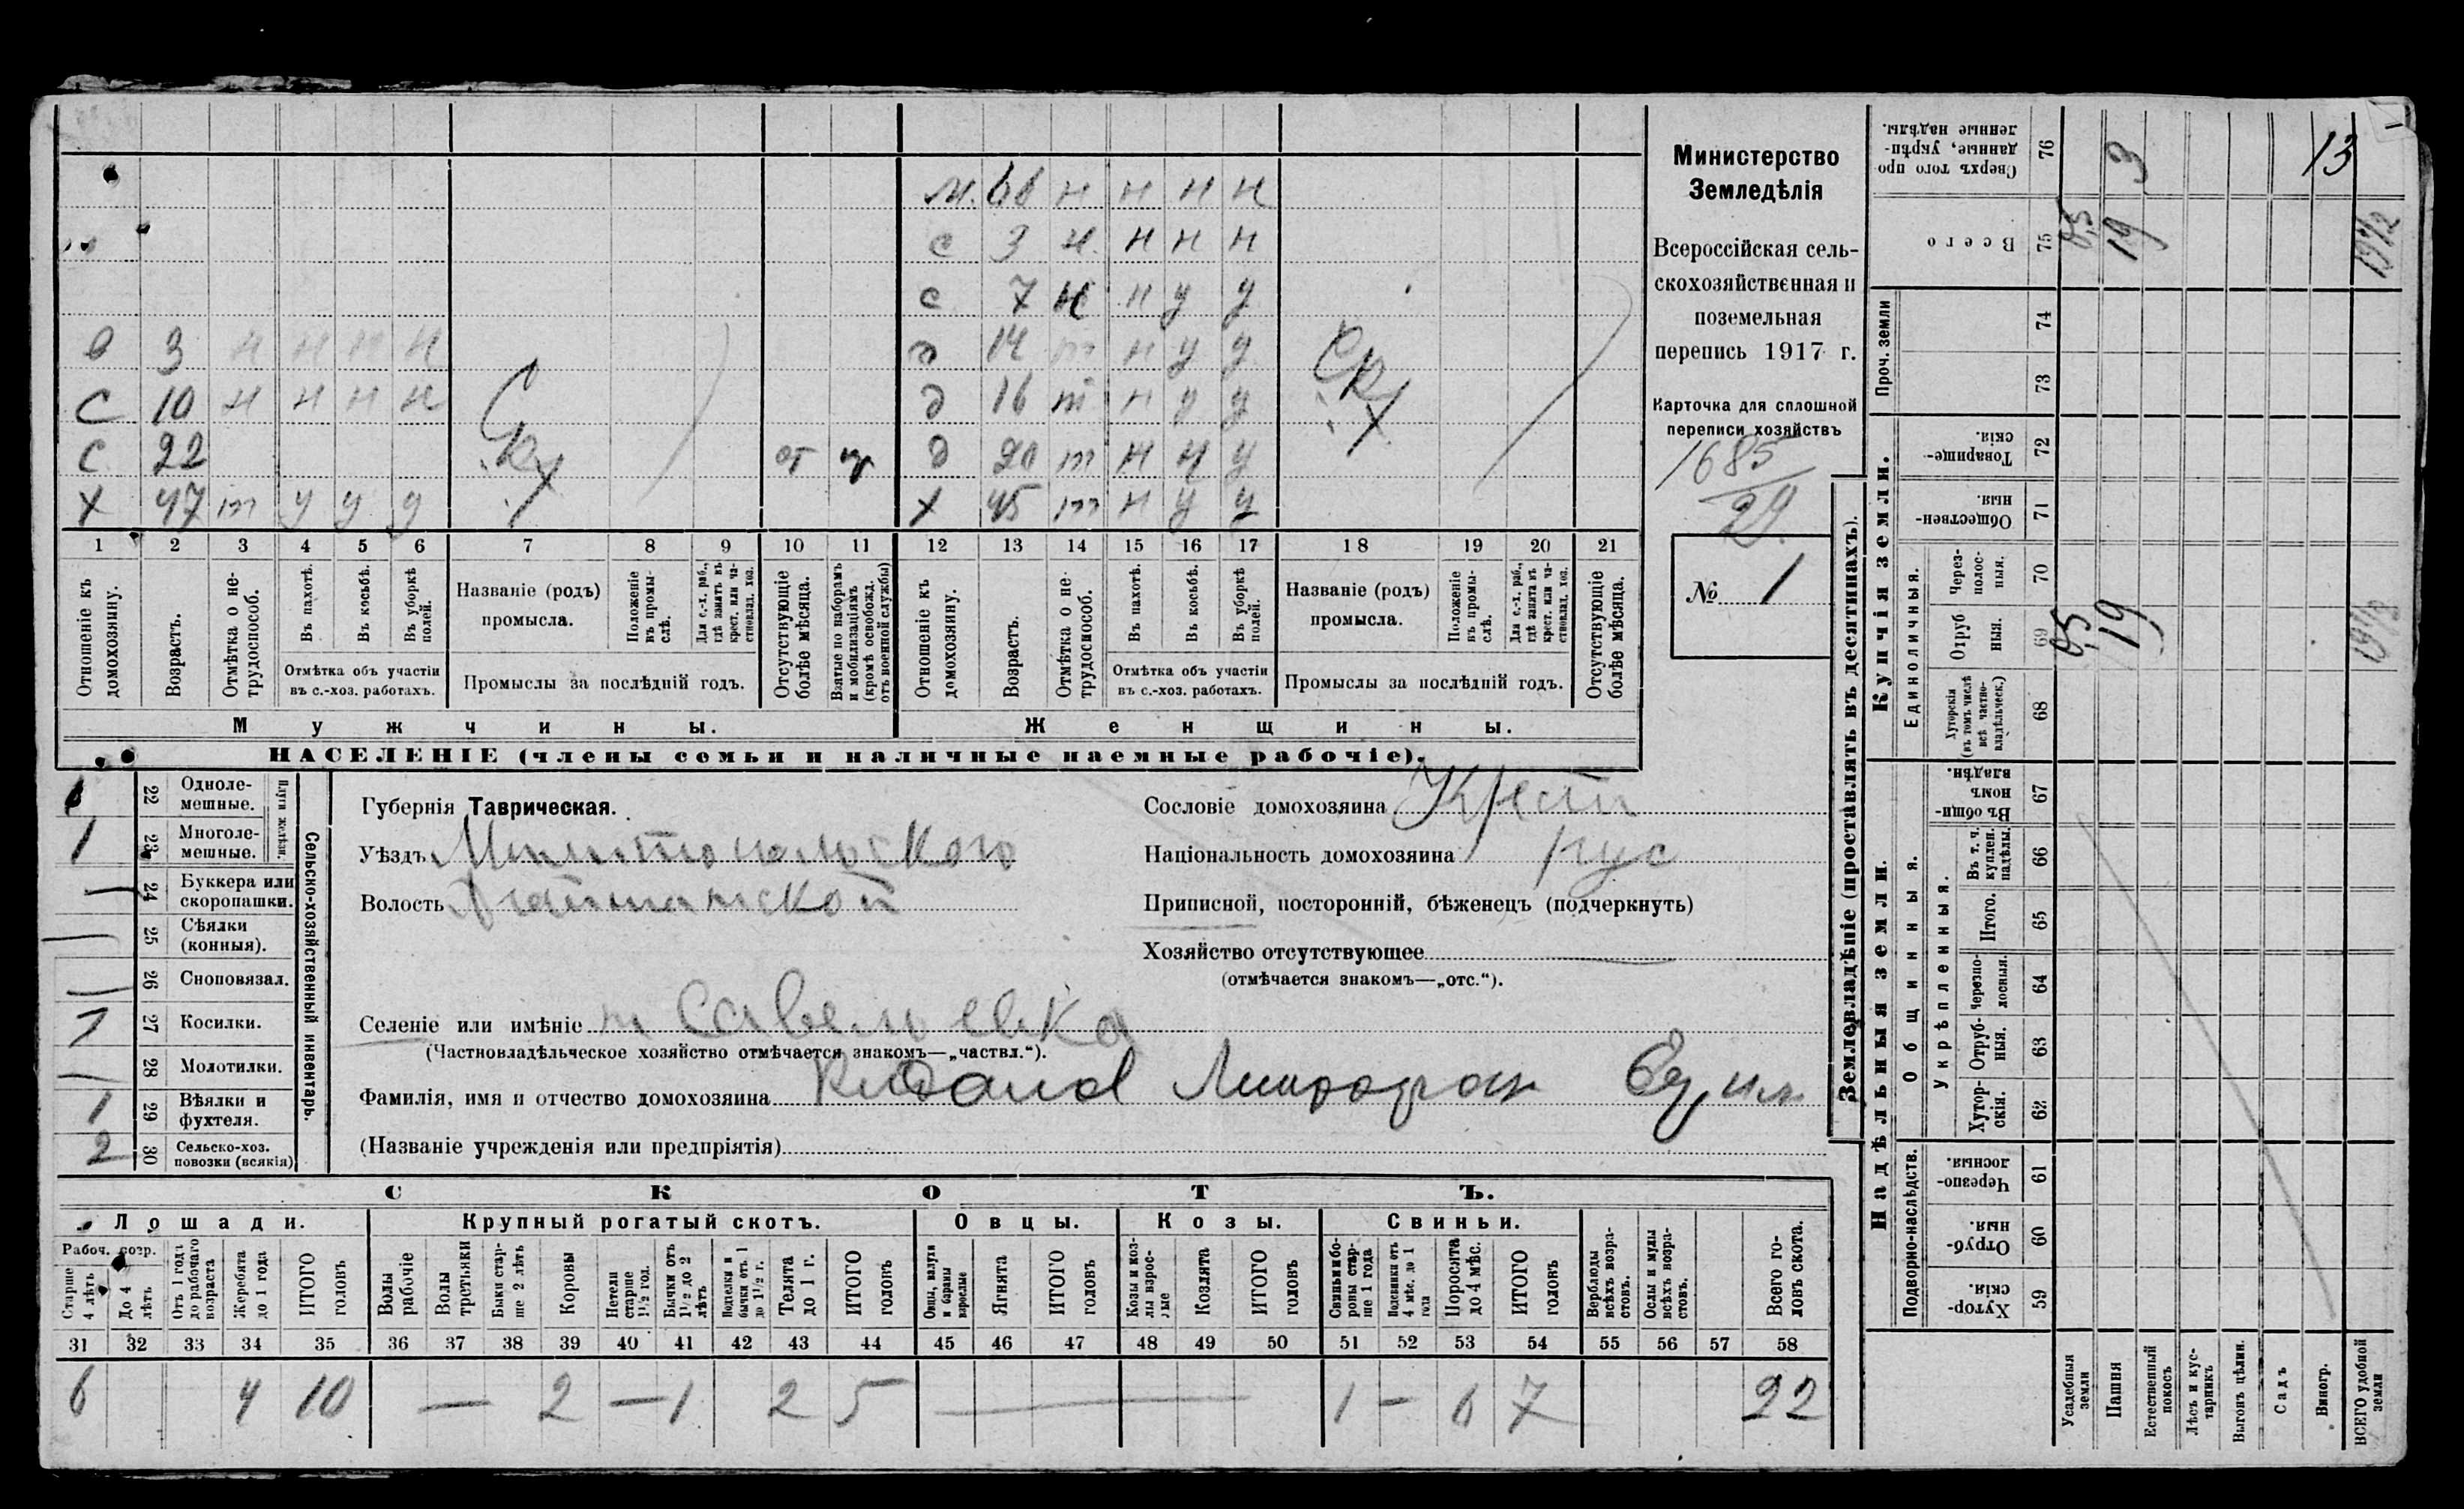 м. 61 н н н н
с 3 н. н н н
с 7 н н у у
в 3 н н н н
д 14 т н у у
С 10 н н н н
д 16 т н у у
С 22 от
д 20 т н у у
Х 47 т у у у
х 45 т н у у
С/х
С/х
1 2 3 4 5 6 7 8 9 10 11 12 13 14 15 16 17 18 19 20 21
Отношеніе къ домохозяину.
Возрастъ.
Отмѣтка о не-трудоспособ.
Въ пахотѣ.
Въ косьбѣ.
Въ уборкѣ полей.
Отмѣтка объ участіи
въ с.-хоз. работахъ.
Названіе (родъ)
промысла.
Положеніе въ промы-слѣ.
Для с.-х. раб., гдѣ занятъ въ крест. или ча-стновлад. хоз.
Промыслы за послѣдній годъ.
Отсутствующіе болѣе мѣсяца.
Взятые по наборамъ и мобилизаціямъ (кромѣ освобожд. отъ военной службы)
Отношеніе къ домохозяину.
Возрастъ.
Отмѣтка о не-трудоспособ.
Въ пахотѣ.
Въ косьбѣ.
Въ уборкѣ полей.
Отмѣтка объ участіи
въ с.-хоз. работахъ.
Названіе (родъ)
промысла.
Положеніе въ промы-слѣ.
Для с.-х. раб., гдѣ занята въ крест. или ча-стновлад. хоз.
Промыслы за послѣдній годъ.
Отсутствующіе болѣе мѣсяца.
Мужчины.
Женщины.
НАСЕЛЕНІЕ (члены семьи и наличные наемные рабочіе).
Министерство
Земледѣлія
Всероссійская сель-
скохозяйственная и
поземельная
перепись 1917 г.
Карточка для сплошной
переписи хозяйствъ
1685
29
№ 1
22 Одноле-мешные.
1 23 Многоле-мешные.
Плуги желѣзн.
— 24 Буккера или скоропашки.
— 25 Сѣялки (конныя).
— 26 Сноповязал.
1 27 Косилки.
— 28 Молотилки.
1 29 Вѣялки и фухтеля.
2 30 Сельско-хоз. повозки (всякія)
Сельско-хозяйственный инвентарь.
Губернія Таврическая.
Уѣздъ Мелитопольского
Волость
Селеніе или имѣніе Савельевка
(Частновладѣльческое хозяйство отмѣчается знакомъ—„частвл.“).
Фамилія, имя и отчество домохозяина
(Названіе учрежденія или предпріятія)
Сословіе домохозяина Крест
Національность домохозяина рус
Приписной, посторонній, бѣженецъ (подчеркнуть)
Хозяйство отсутствующее —
(отмѣчается знакомъ—„отс.“).
СКОТЪ.
Лошади.
Крупный рогатый скотъ.
Овцы.
Козы.
Свиньи.
Рабоч. возр.
Старше 4 лѣтъ
До 4 лѣтъ
Отъ 1 года до рабочаго возраста
Жеребята до 1 года
ИТОГО головъ
Волы рабочіе
Волы третьяки
Быки стар-ше 2 лѣтъ
Коровы
Нетели старше 1½ год.
Бычки отъ 1½ до 2 лѣтъ
Подтелки и бычки отъ 1 до 1½ г.
Телята до 1 г.
ИТОГО головъ
Овцы, валухи и бараны взрослые
Ягнята
ИТОГО головъ
Козы и коз-лы взрос-лые
Козлята
ИТОГО головъ
Свиньи и бо-ровы стар-ше 1 года
Подсвинки отъ 4 мѣс. до 1 года
Поросята до 4 мѣс.
ИТОГО головъ
Верблюды всѣхъ возра-стовъ.
Ослы и мулы всѣхъ возра-стовъ.
Всего го-ловъ скота.
31 32 33 34 35 36 37 38 39 40 41 42 43 44 45 46 47 48 49 50 51 52 53 54 55 56 57 58
6 4 10 — 2 — 1 2 5 — 1 — 6 7 22
Землевладѣніе (проставлять въ десятинахъ).
Надѣльныя земли.
Купчія земли.
Проч. земли
Подворно-наслѣдств.
Общинныя.
Укрѣпленныя.
Единоличныя.
59 Хутор-скія.
60 Отруб-ныя.
61 Черезпо-лосныя.
62 Хутор-скія.
63 Отруб-ныя.
64 Черезпо-лосныя.
65 Итого.
66 Въ т. ч. куплен. надѣлы.
67 Въ общи-номъ владѣн.
68 Хуторскія (въ томъ числѣ всѣ частно-владѣльческ.)
69 Отруб ныя.
70 Через-полос-ныя.
71 Обществен-ныя.
72 Товарище-скія.
73
74
75 Всего
76 Сверхъ того про-данные, укрѣп-ленные надѣлы.
Усадебныя земли
Пашня
Естественный покосъ
Лѣсъ и кус-тарникъ
Выгонъ цѣлин.
Садъ
Виногр.
ВСЕГО удобной земли
0,5 19 19½
0,5 19 19½
3
13